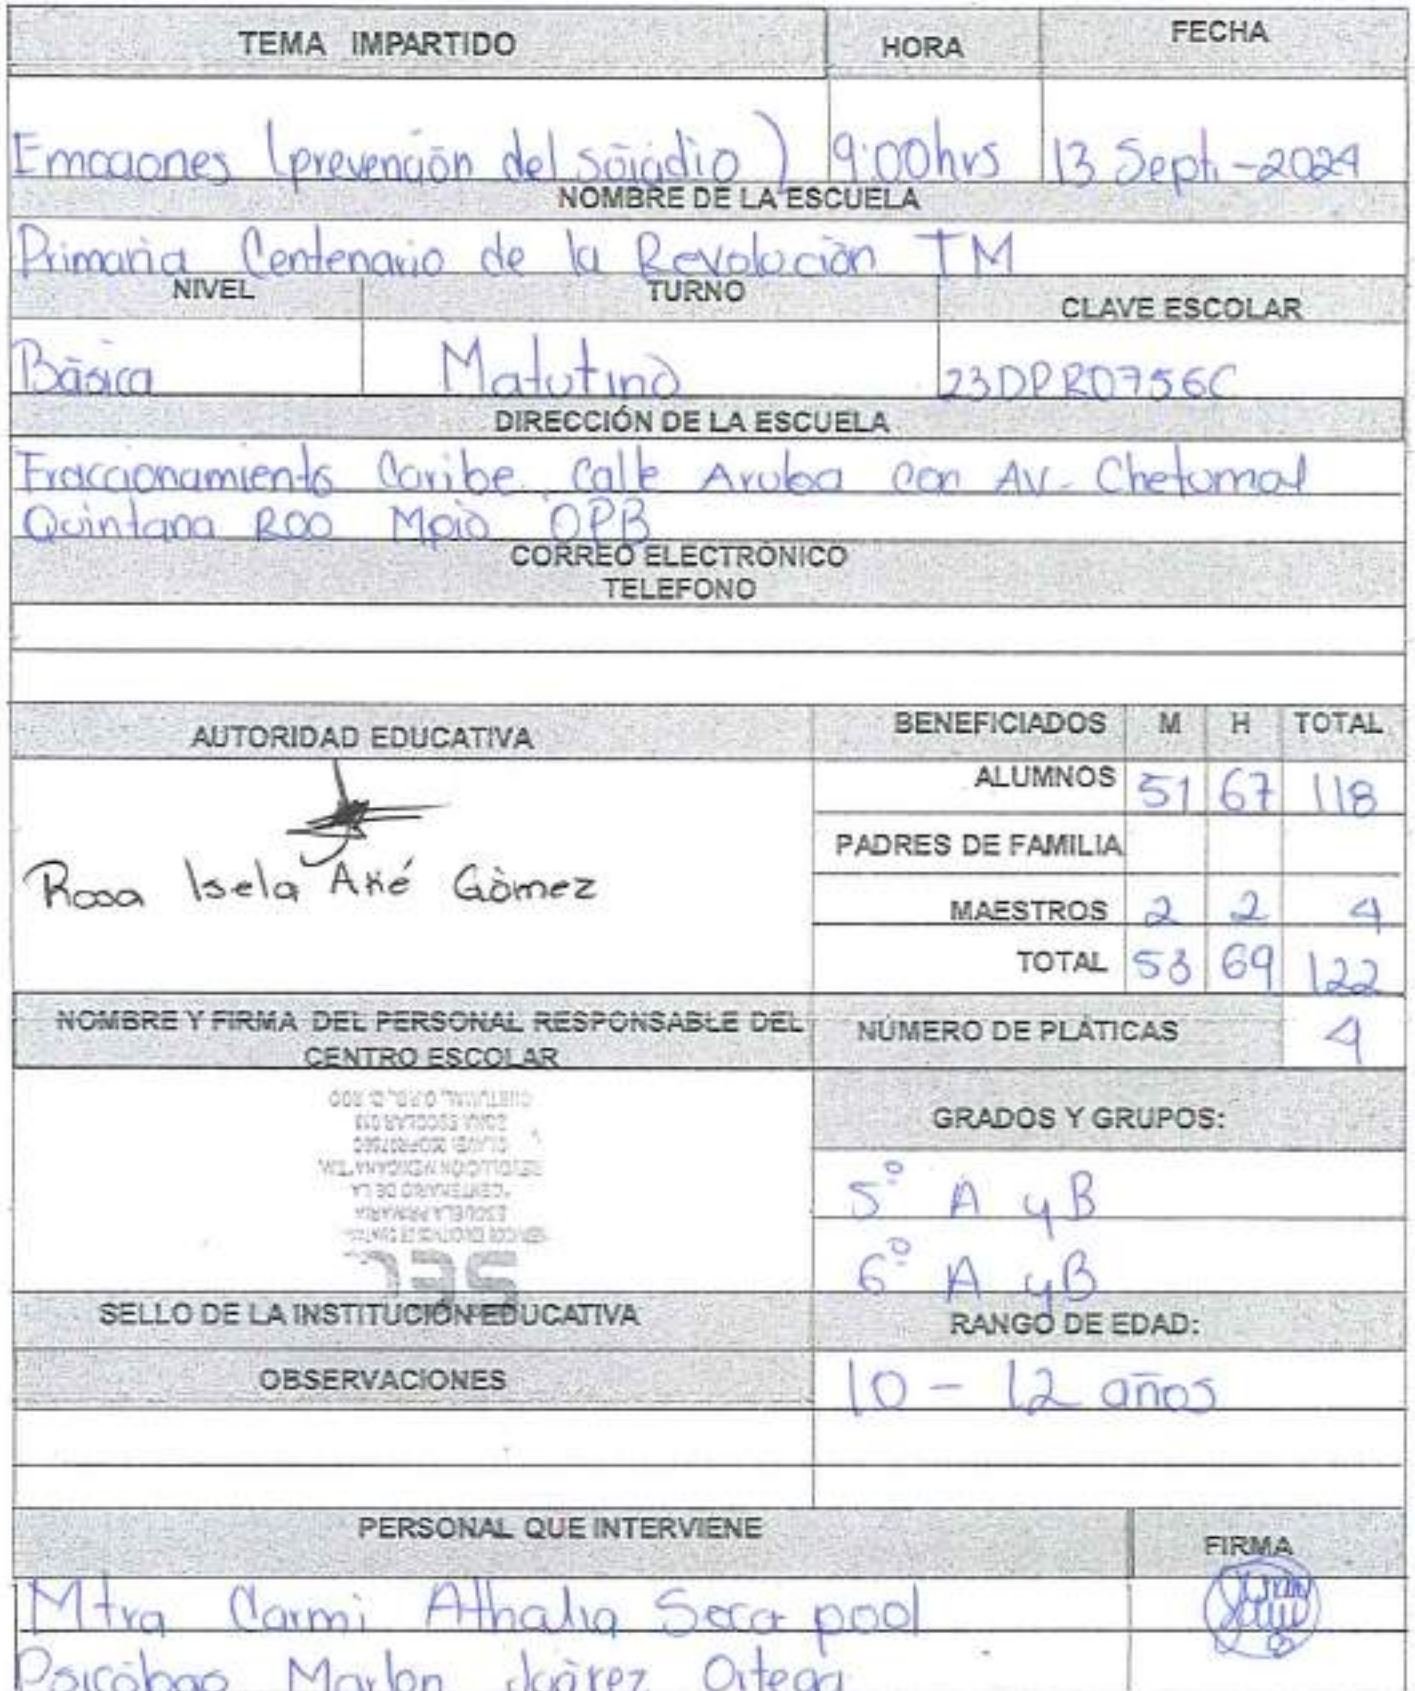 TEMA IMPARTIDO HORA FECHA
Emociones (prevención del suicidio) 9:00hrs 13 Sept.-2024
NOMBRE DE LA ESCUELA
Primaria Centenario de la Revolución TM
NIVEL TURNO CLAVE ESCOLAR
Básica Matutino 23DPR0756C
DIRECCIÓN DE LA ESCUELA
Fraccionamiento Caribe calle Aruba con AV. Chetumal
Quintana Roo Mpio OPB
CORREO ELECTRÓNICO
TELEFONO
AUTORIDAD EDUCATIVA BENEFICIADOS M H TOTAL
ALUMNOS 51 67 118
PADRES DE FAMILIA
Rosa Isela Aké Gómez
MAESTROS 2 2 4
TOTAL 53 69 122
NOMBRE Y FIRMA DEL PERSONAL RESPONSABLE DEL
CENTRO ESCOLAR
NÚMERO DE PLÁTICAS 4
GRADOS Y GRUPOS:
5º A y B
6º A y B
SEC
ESCUELA PRIMARIA
"CENTENARIO DE LA
REVOLUCIÓN MEXICANA" T.M.
ZONA ESCOLAR
CHETUMAL, O.P.B., Q. ROO
SELLO DE LA INSTITUCIÓN EDUCATIVA RANGO DE EDAD:
OBSERVACIONES 10 - 12 años
PERSONAL QUE INTERVIENE FIRMA
Mtra Carmi Athalia Seca pool
Psicólogo Marlon Juárez Ortega